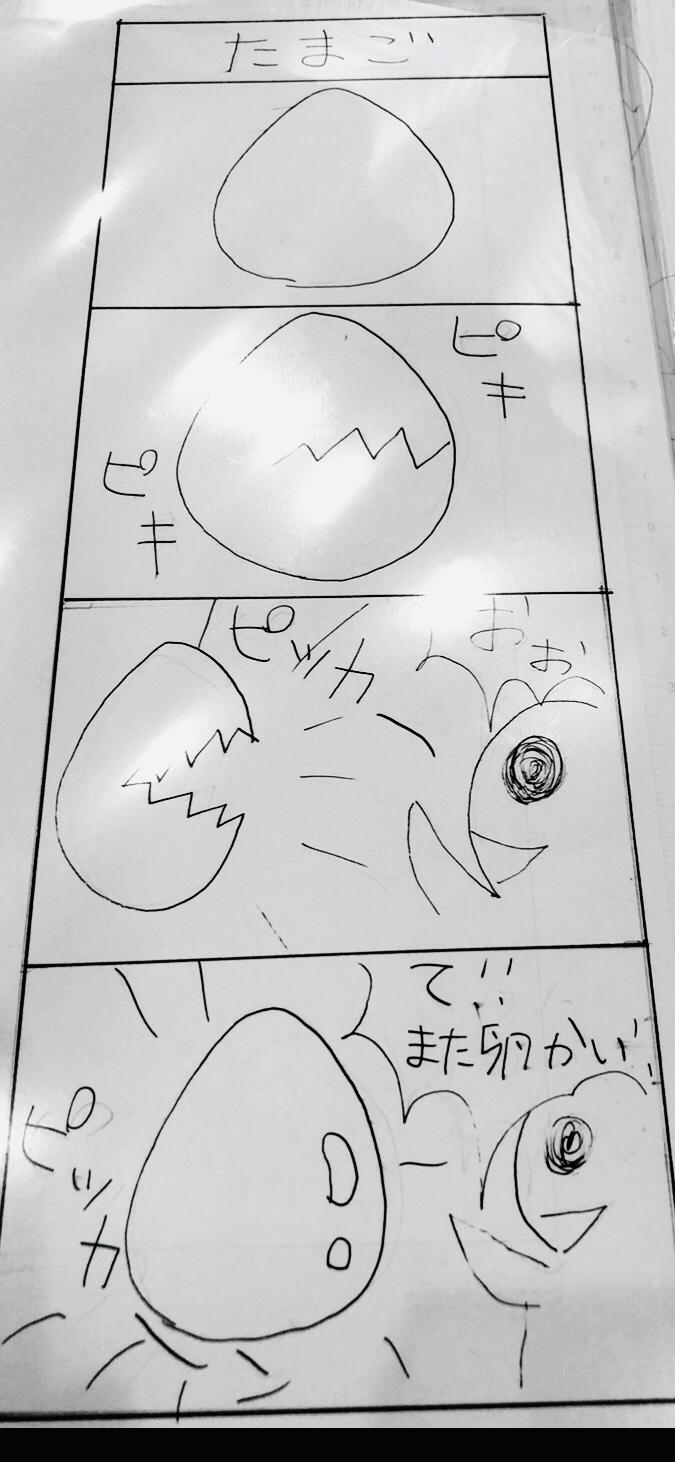 たまご
ピキ
ピキ
ピッカ
おぉ
て!!
また卵かい!!
ピッカ